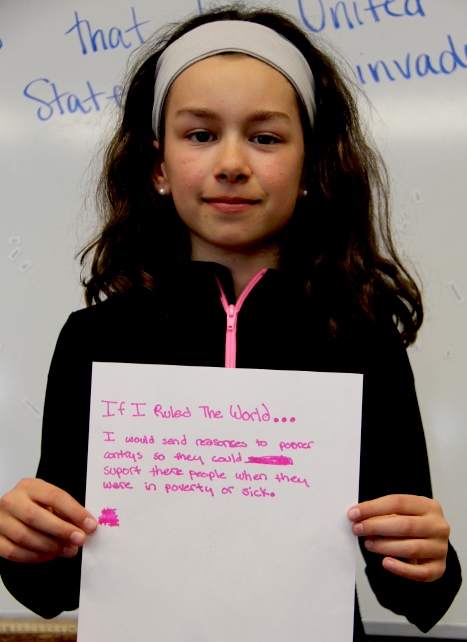 that the United
States invad
If I Ruled The World...
I would send reasorses to poorer
contrys so they could
suport there people when they
were in poverty or sick.